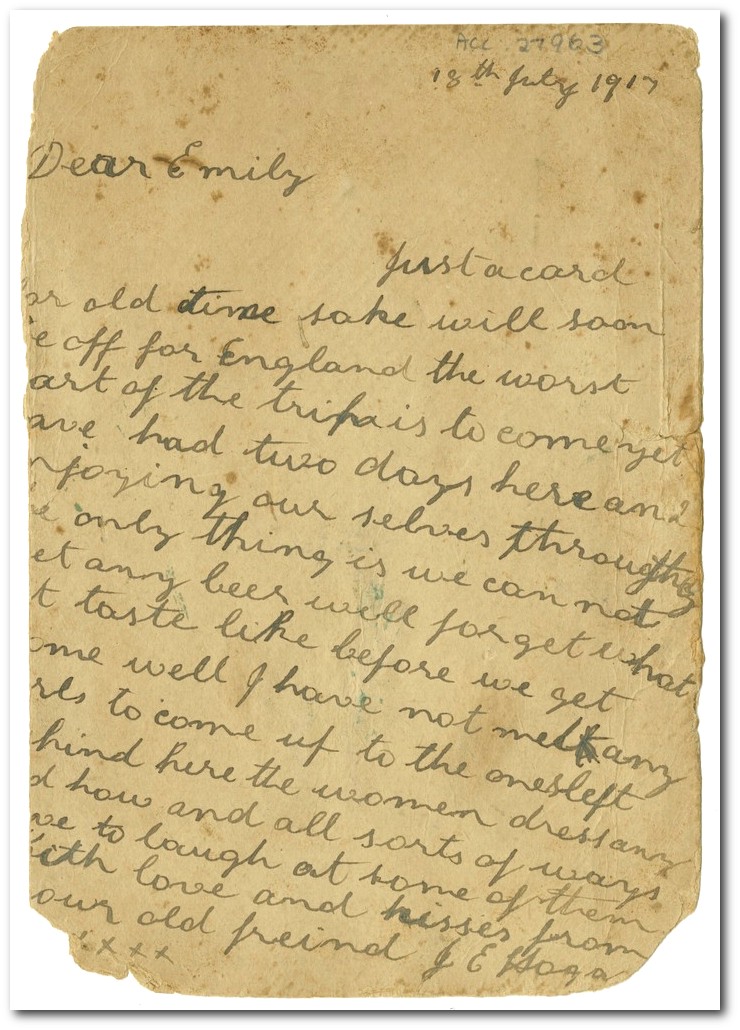 Acc 27963
18th July 1917
Dear Emily
Just a card
or old time sake will soon
e off for England the worst
art of the trip is to come yet
ave had two days here and
njoying our selves through
e only thing is we can not
et anny beer will forget what
t taste like before we get
ome well I have not met any
rls to come up to the ones left
hind here the women dress any
d how and all sorts of ways
ve to laugh at some of them
ith love and kisses from
our old freind J E Hoga
xxxx